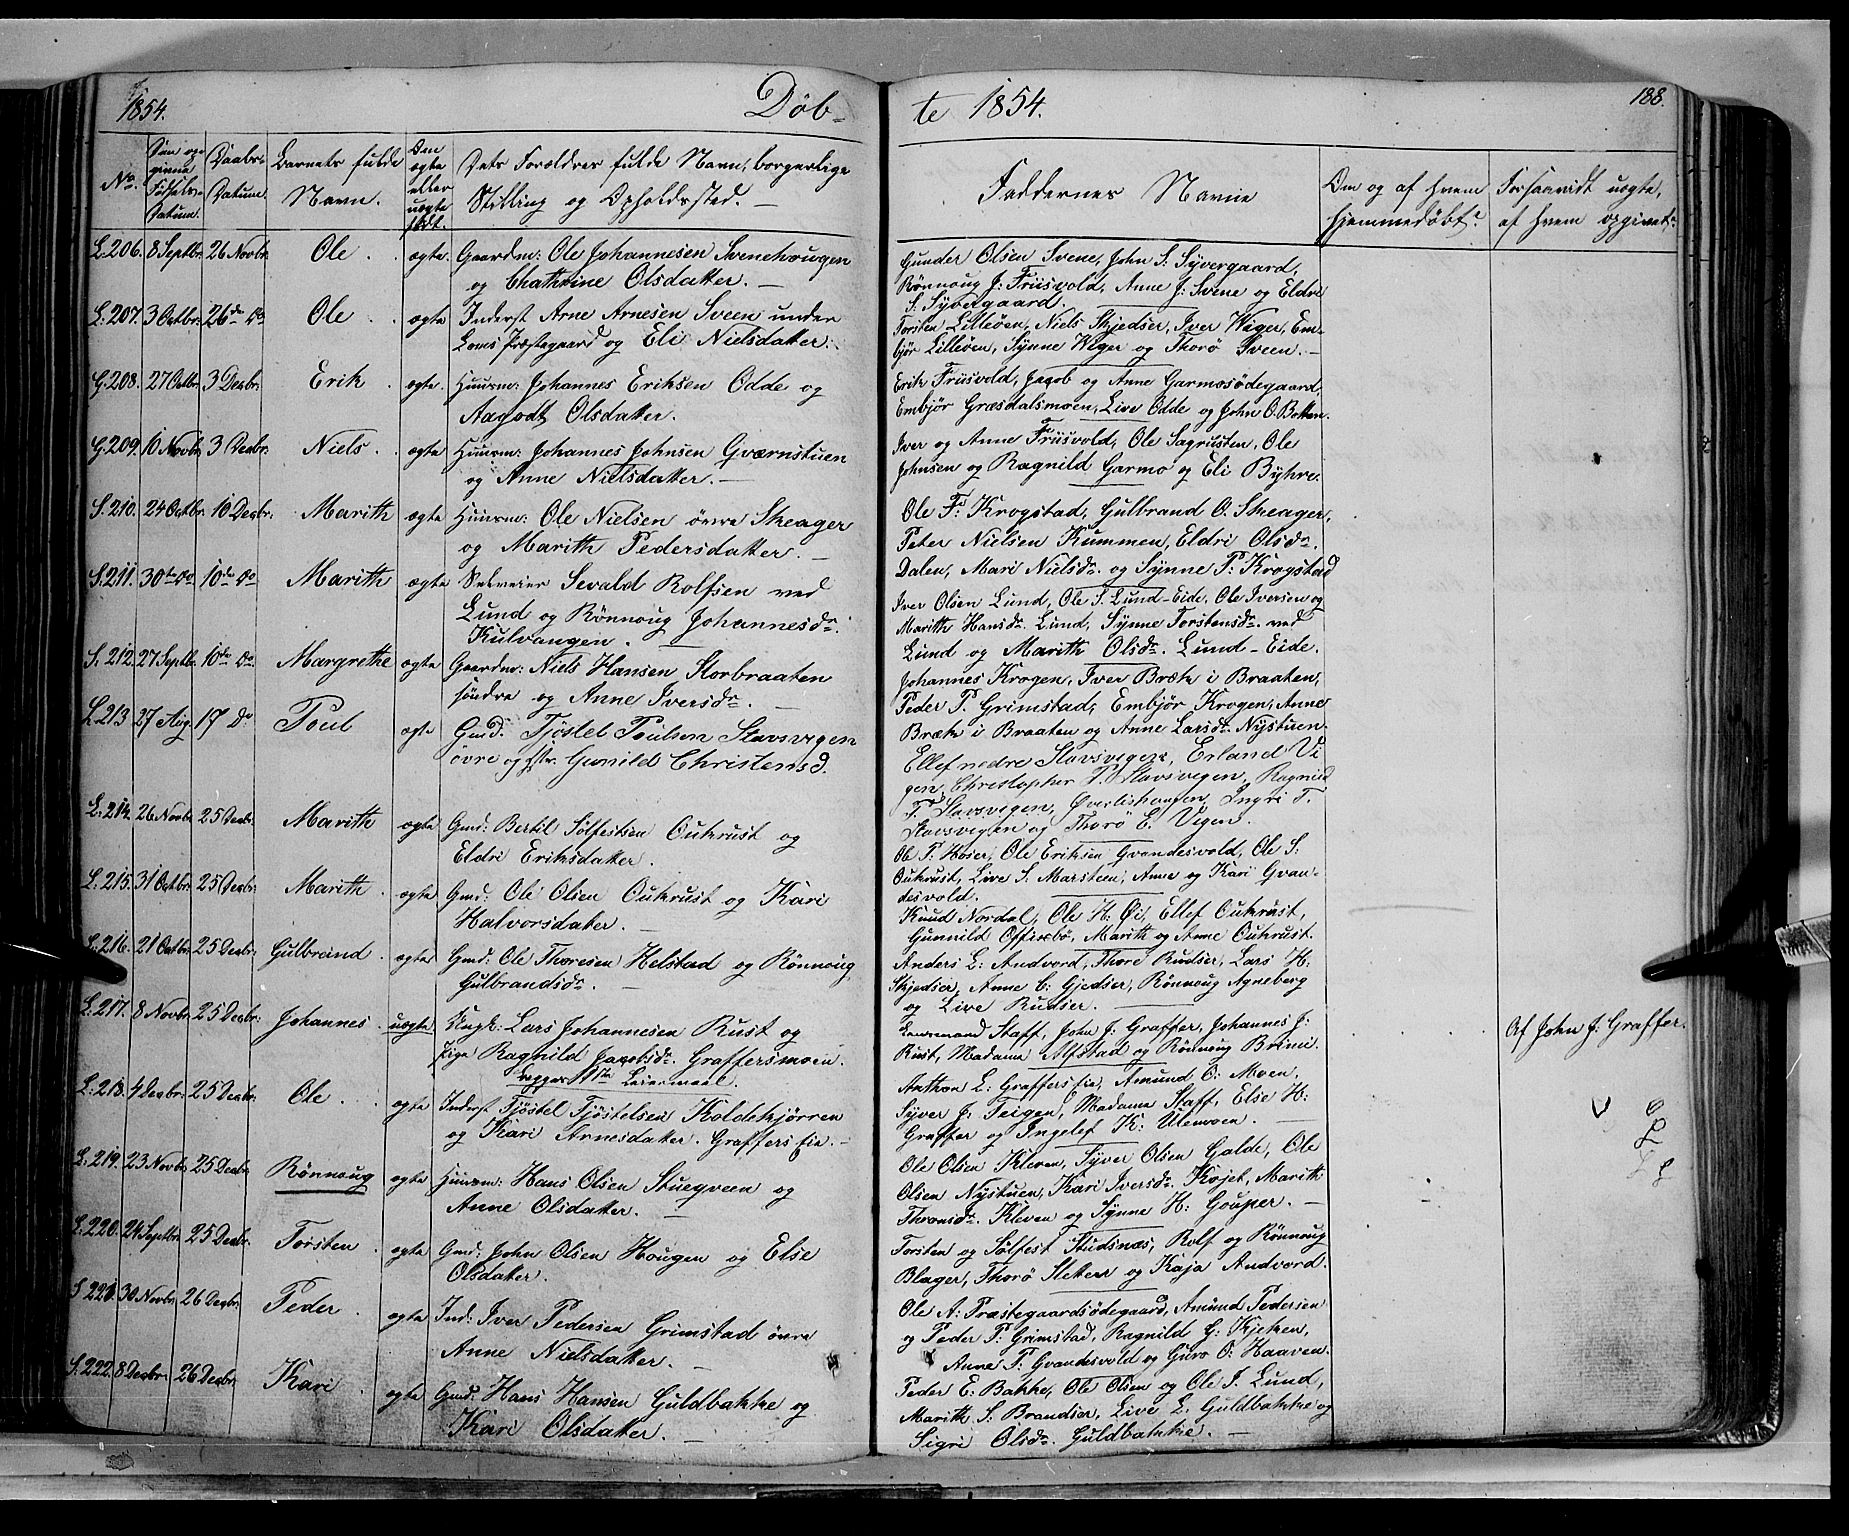 1854. Döb-
No. Den opgivne Fødsels-Datum. Daabs-Datum. Barnets fulde Navn. Om ægte eller uægte født. Dets Forældres fulde Navn, borgerlige Stilling og Opholdssted. —
L. 206. 8 Septbr. 26 Novbr. Ole . ægte Gaardm: Ole Johannesen Svenehougen
og Chathrine Olsdatter. —
L. 207. 3 Octbr. 26de Do Ole . ægte Inderst Arne Arnesen Sveen under
Loms Præstegaard og Eli Nielsdatter.
G. 208. 27 Octbr. 3 Decbr. Erik . ægte. Huusm: Johannes Eriksen Odde og
Aagodt Olsdatter.
G. 209. 10 Novbr. 3 Decbr. Niels . ægte Huusm: Johannes Johnsen Qværnstuen
og Anne Nielsdatter. —
S. 210. 24 Octbr. 10 Decbr. Marith ægte Huusm: Ole Nielsen övre Skeager
og Marith Pedersdatter. —
S. 211. 30te Do 10de Do Marith ægte Selveier Sevald Rolfsen ved
Lund og Rönnoug Johannesdr.
Kulvangen. —
S. 212. 27 Septbr. 10de Do Margrethe ægte Gaardm: Niels Hansen Storbraaten
söndre og Anne Iversdr. —
L. 213 27 Aug. 17 Do Poul ægte Gmd. Tjöstel Poulsen Stavsvigen
övre og Hstr. Gunild Christensd.
L. 214. 26 Novbr. 25 Decbr. Marith ægte Gmd: Bertil Sölfestsen Oukrust og
Eldri Eriksdatter.
L. 215. 31 Octbr. 25 Decbr. Marith . ægte Gmd: Ole Olsen Oukrust og Kari
Halvorsdatter. —
L. 216. 21 Octbr. 25 Decbr. Gulbrand . ægte Gmd: Ole Thoresen Helstad og Rönnoug
Gulbrandsdr. —
L. 217. 8 Novbr. 25 Decbr. Johannes . uægte Ungk: Lars Johannesen Rust og
Pige Ragnild Jacobsdr. Graffersmoen.
Begges 1ste Leiermaal.
L. 218. 4 Decbr. 25 Decbr. Ole . ægte Inderst Tjöstel Tjöstelsen Koldekjörren
og Kari Arnesdatter. Graffers Eie. —
L. 219. 23 Novbr. 25 Decbr. Rönnoug ægte Huusm: Hans Olsen Stuegveen og
Anne Olsdatter. —
L. 220. 24 Septbr. 25 Decbr. Torsten . ægte Gmd: John Olsen Hougen og Else
Olsdatter.
S. 221. 30 Novbr. 26 Decbr. Peder . ægte Ind: Iver Pedersen Grimstad övre
Anne Nielsdatter. —
S. 222. 8 Decbr. 26 Decbr. Kari . ægte Gmd. Hans Hansen Guldbakke og
Kari Olsdatter. —
te 1854. 188.
Faddernes Navne Om og af hvem hjemmedøbt? Forsaavidt uægte, af hvem opgivet?
Gunder Olsen Svene, John S. Syvergaard,
Rönnoug J. Friisvold, Anne J. Svene og Eldri
S. Syvergaard.
Torsten Lilleöen, Niels Skjedser, Iver Wiger, Em-
björ Lilleöen, Synne Wiger og Thorö Sveen. —
Erik Friisvold, Jacob og Anne Garmosödegaard,
Embjör Græsdalsmoen, Live Odde og John O. Botten.
Iver og Anne Friisvold, Ole Sagrusten, Ole
Johnsen og Ragnild Garmo og Eli Byhre.
Ole F. Krogstad, Gulbrand O. Skeager,
Peter Nielsen Kummen, Eldri Olsdr.
Dalen, Mari Nielsdr. og Synne P. Krogstad
Iver Olsen Lund, Ole S. Lund-Eide, Ole Iversen og
Marith Hansdr. Lund, Synne Torstensdr. ved
Lund og Marith Olsdr. Lund-Eide.
Johannes Krogen, Iver Bræk i Braaten,
Peder P. Grimstad, Embjör Krogen, Anne
Bræk i Braaten og Anne Larsdr. Nystuen.
Ellef nedre Stavsvigen, Erland Vi
gen, Christopher P. Stavsvigen, Ragnild
T. Stavsvigen, Ingri T.
Stavsvigen og Thorö E. Vigen.
Ole P. Hoser, Ole Eriksen Gvandesvold, Ole S.
Oukrust, Live S. Marsteen, Anne og Kari Gvan-
desvold.
Knud Nordal, Ole H. Öi, Ellef Oukrust,
Gunnild Offigsbö, Marith og Anne Oukrust.
Anders L. Andvord, Thore Rudser, Lars H.
Skjedser, Anne C. Gjedser, Rönnoug Agneberg
og Live Rudser.
Lensmand Staff, John J. Graffer, Johannes J. Af John J. Graffer.
Rust, Madame Alfstad og Rönnoug Brimi.
Anthon L. Graffers Eie, Amund O. Moen,
Syver J. Teigen, Madame Staff, Else H.
Graffer og Ingelef K. Ulenvoen. —
Ole Olsen Kleven, Syver Olsen Galde, Ole
Olsen Nystuen, Kari Iversdr. Kröjet, Marith
Thronsdr. Kleven og Synne H. Gouper. —
Torsten og Sölfest Studsnæs, Rolf og Rönnoug
Blager, Thorö Sletten og Kaja Andvord.
Ole A. Præstegaardsödegaard, Amund Pedersen
og Peder P. Grimstad, Ragnild G. Kjekken,
Anne P. Gvandesvold og Guro O. Haaven.
Peder E. Bakke, Ole Olsen og Ole I. Lund,
Marith S. Brandser, Live L. Guldbakke og
Sigri Olsdr. Guldbakke. —